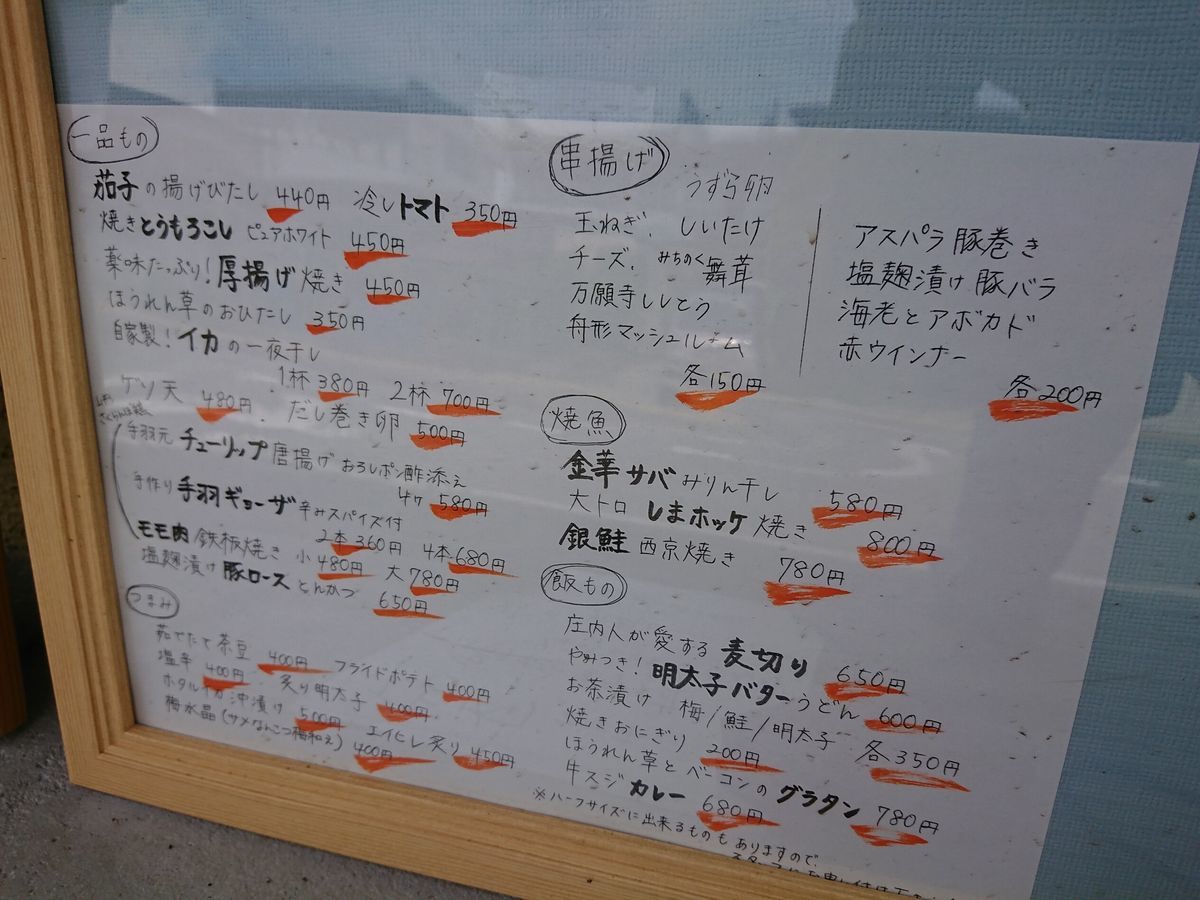 一品もの
茄子の揚げびたし 440円 冷しトマト 350円
焼きとうもろこし ピュアホワイト 450円
薬味たっぷり!厚揚げ焼き 450円
ほうれん草のおひたし 350円
自家製!イカの一夜干し
1杯 380円 2杯 700円
ゲソ天 480円. だし巻き卵 500円
手羽元 チューリップ唐揚げ おろしポン酢添え
4ヶ 580円
手作り 手羽ギョーザ 辛みスパイス付
2本 360円 4本 680円
モモ肉 鉄板焼き 小 480円 大 780円
塩麹漬け豚ロースとんかつ 650円
つまみ
茹でたて茶豆 400円 フライドポテト 400円
塩辛 400円 炙り明太子 400円
ホタルイカ沖漬け 500円 エイヒレ炙り 450円
梅水晶(サメなんこつ梅和え) 400円
串揚げ
うずら卵
玉ねぎ. しいたけ
チーズ. みちのく舞茸
万願寺ししとう
舟形マッシュルーム
各150円
アスパラ豚巻き
塩麹漬け豚バラ
海老とアボカド
赤ウインナー
各200円
焼魚
金華サバみりん干し 580円
大トロ しまホッケ焼き 800円
銀鮭 西京焼き 780円
飯もの
庄内人が愛する 麦切り 650円
やみつき!明太子バターうどん 600円
お茶漬け 梅/鮭/明太子 各350円
焼きおにぎり 200円
ほうれん草とベーコンのグラタン 780円
牛スジカレー 680円
※ハーフサイズに出来るものもありますので、